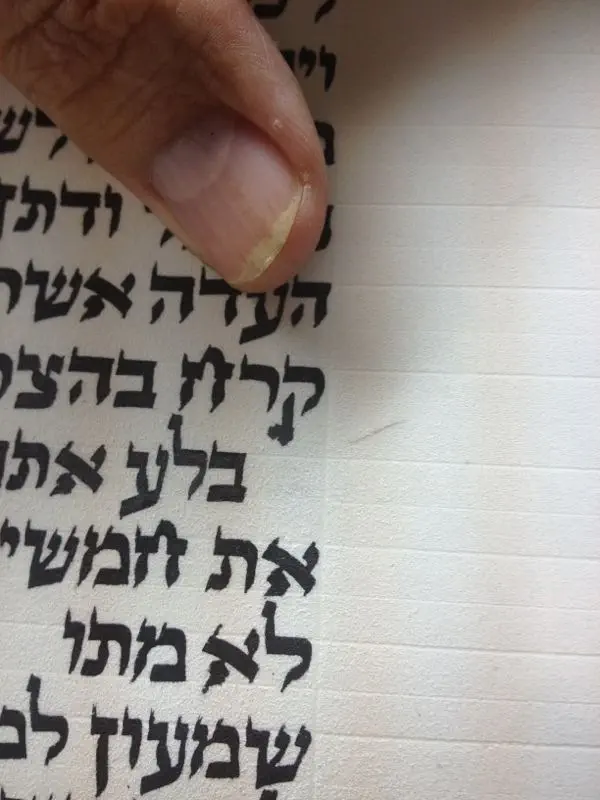 ודת
העדה אשר
קרח בהצ
בלע את
את חמשי
לא מתו
שמעון למ